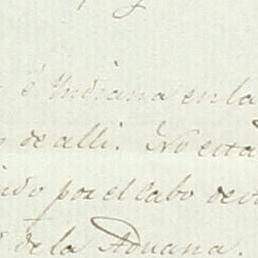 é Indiana en la
de alli. No esta
ido por el cabo de
de la Aduana.